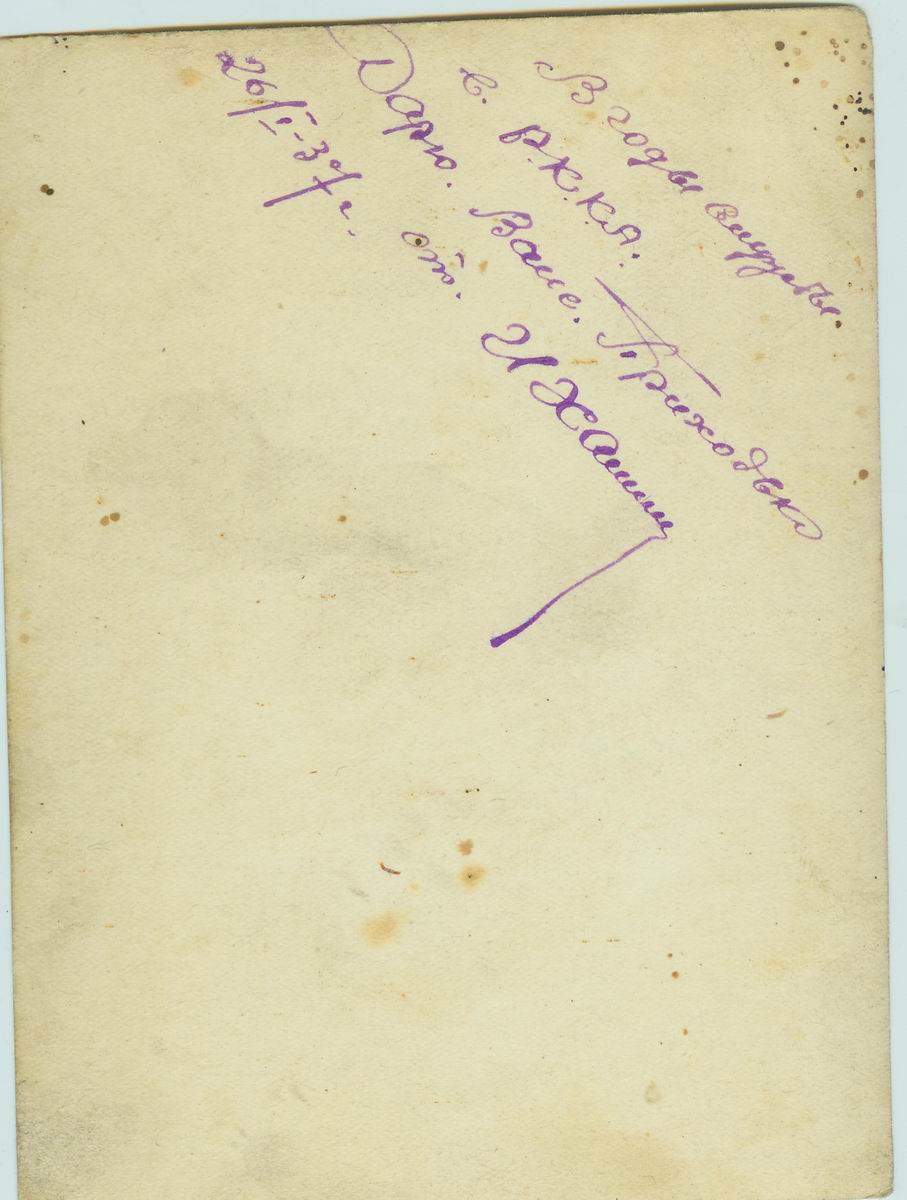 В годы службы.
в. Р.К.К.А.
Дарю. Ване. Приходько
от. И
26/I-37 г.